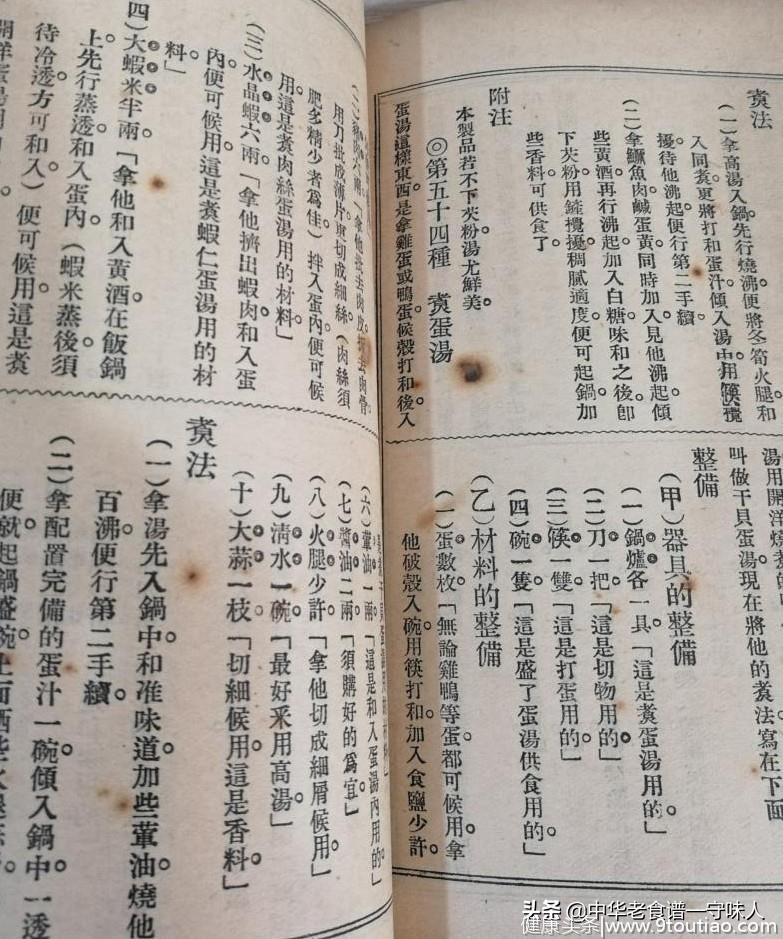 煑法
(一)拿高湯入鍋。先行燒沸。便將冬筍火腿和
入同煑。更將打和蛋汁。傾入湯中。用筷攪
擾。待他沸起。便行第二手續。
(二)拿鱖魚肉鹹蛋黃同時加入。見他沸起。傾
些黃酒。再行沸起。加入白糖。味和之後。卽
下芡粉。用鏟攪擾。稠膩適度。便可起鍋。加
些香料。可供食了。
附注
本製品若不下芡粉。湯尤鮮美。
◎第五十四種 煑蛋湯
蛋湯這樣東西。是拿雞蛋或鴨蛋。候殼打和後。入
湯用開洋燒
叫做干貝蛋湯。現在將他的煑法寫在下面
整備
(甲)器具的整備
(一)鍋爐各一具。「這是煑蛋湯用的」
(二)刀一把。「這是切物用的」
(三)筷一雙。「這是打蛋用的」
(四)碗一隻。「這是盛了蛋湯供食用的」
(乙)材料的整備
(一)蛋數枚。「無論雞鴨等蛋。都可候用。拿
他破殼入碗。用筷打和。加入食鹽少許。
用刀批成薄片。更切成細絲。(肉絲須
肥多精少者爲佳)拌入蛋內。便可候
用。這是煑肉絲蛋湯用的材料」
(三)水晶蝦六兩。「拿他擠出蝦肉。和入蛋
內。便可候用。這是煑蝦仁蛋湯用的材
料」
(四)大蝦米半兩。「拿他和入黃酒。在飯鍋
上先行蒸透。和入蛋內。(蝦米蒸後。須
待冷透。方可和入)便可候用。這是煑
開洋蛋湯用
(六)葷油一兩。「這是和入蛋湯內用的」
(七)醬油二兩。「須購好的爲宜」
(八)火腿少許。「拿他切成細屑候用」
(九)淸水一碗。「最好釆用高湯」
(十)大蒜一枝。「切細候用。這是香料」
煑法
(一)拿湯先入鍋中。和准味道。加些葷油。燒他
百沸。便行第二手續。
(二)拿配置完備的蛋汁一碗。傾入鍋中。一透
便就起鍋盛碗。上面洒些火腿
头条 @中华老食谱一守味人
健康头条|www.9toutiao.com